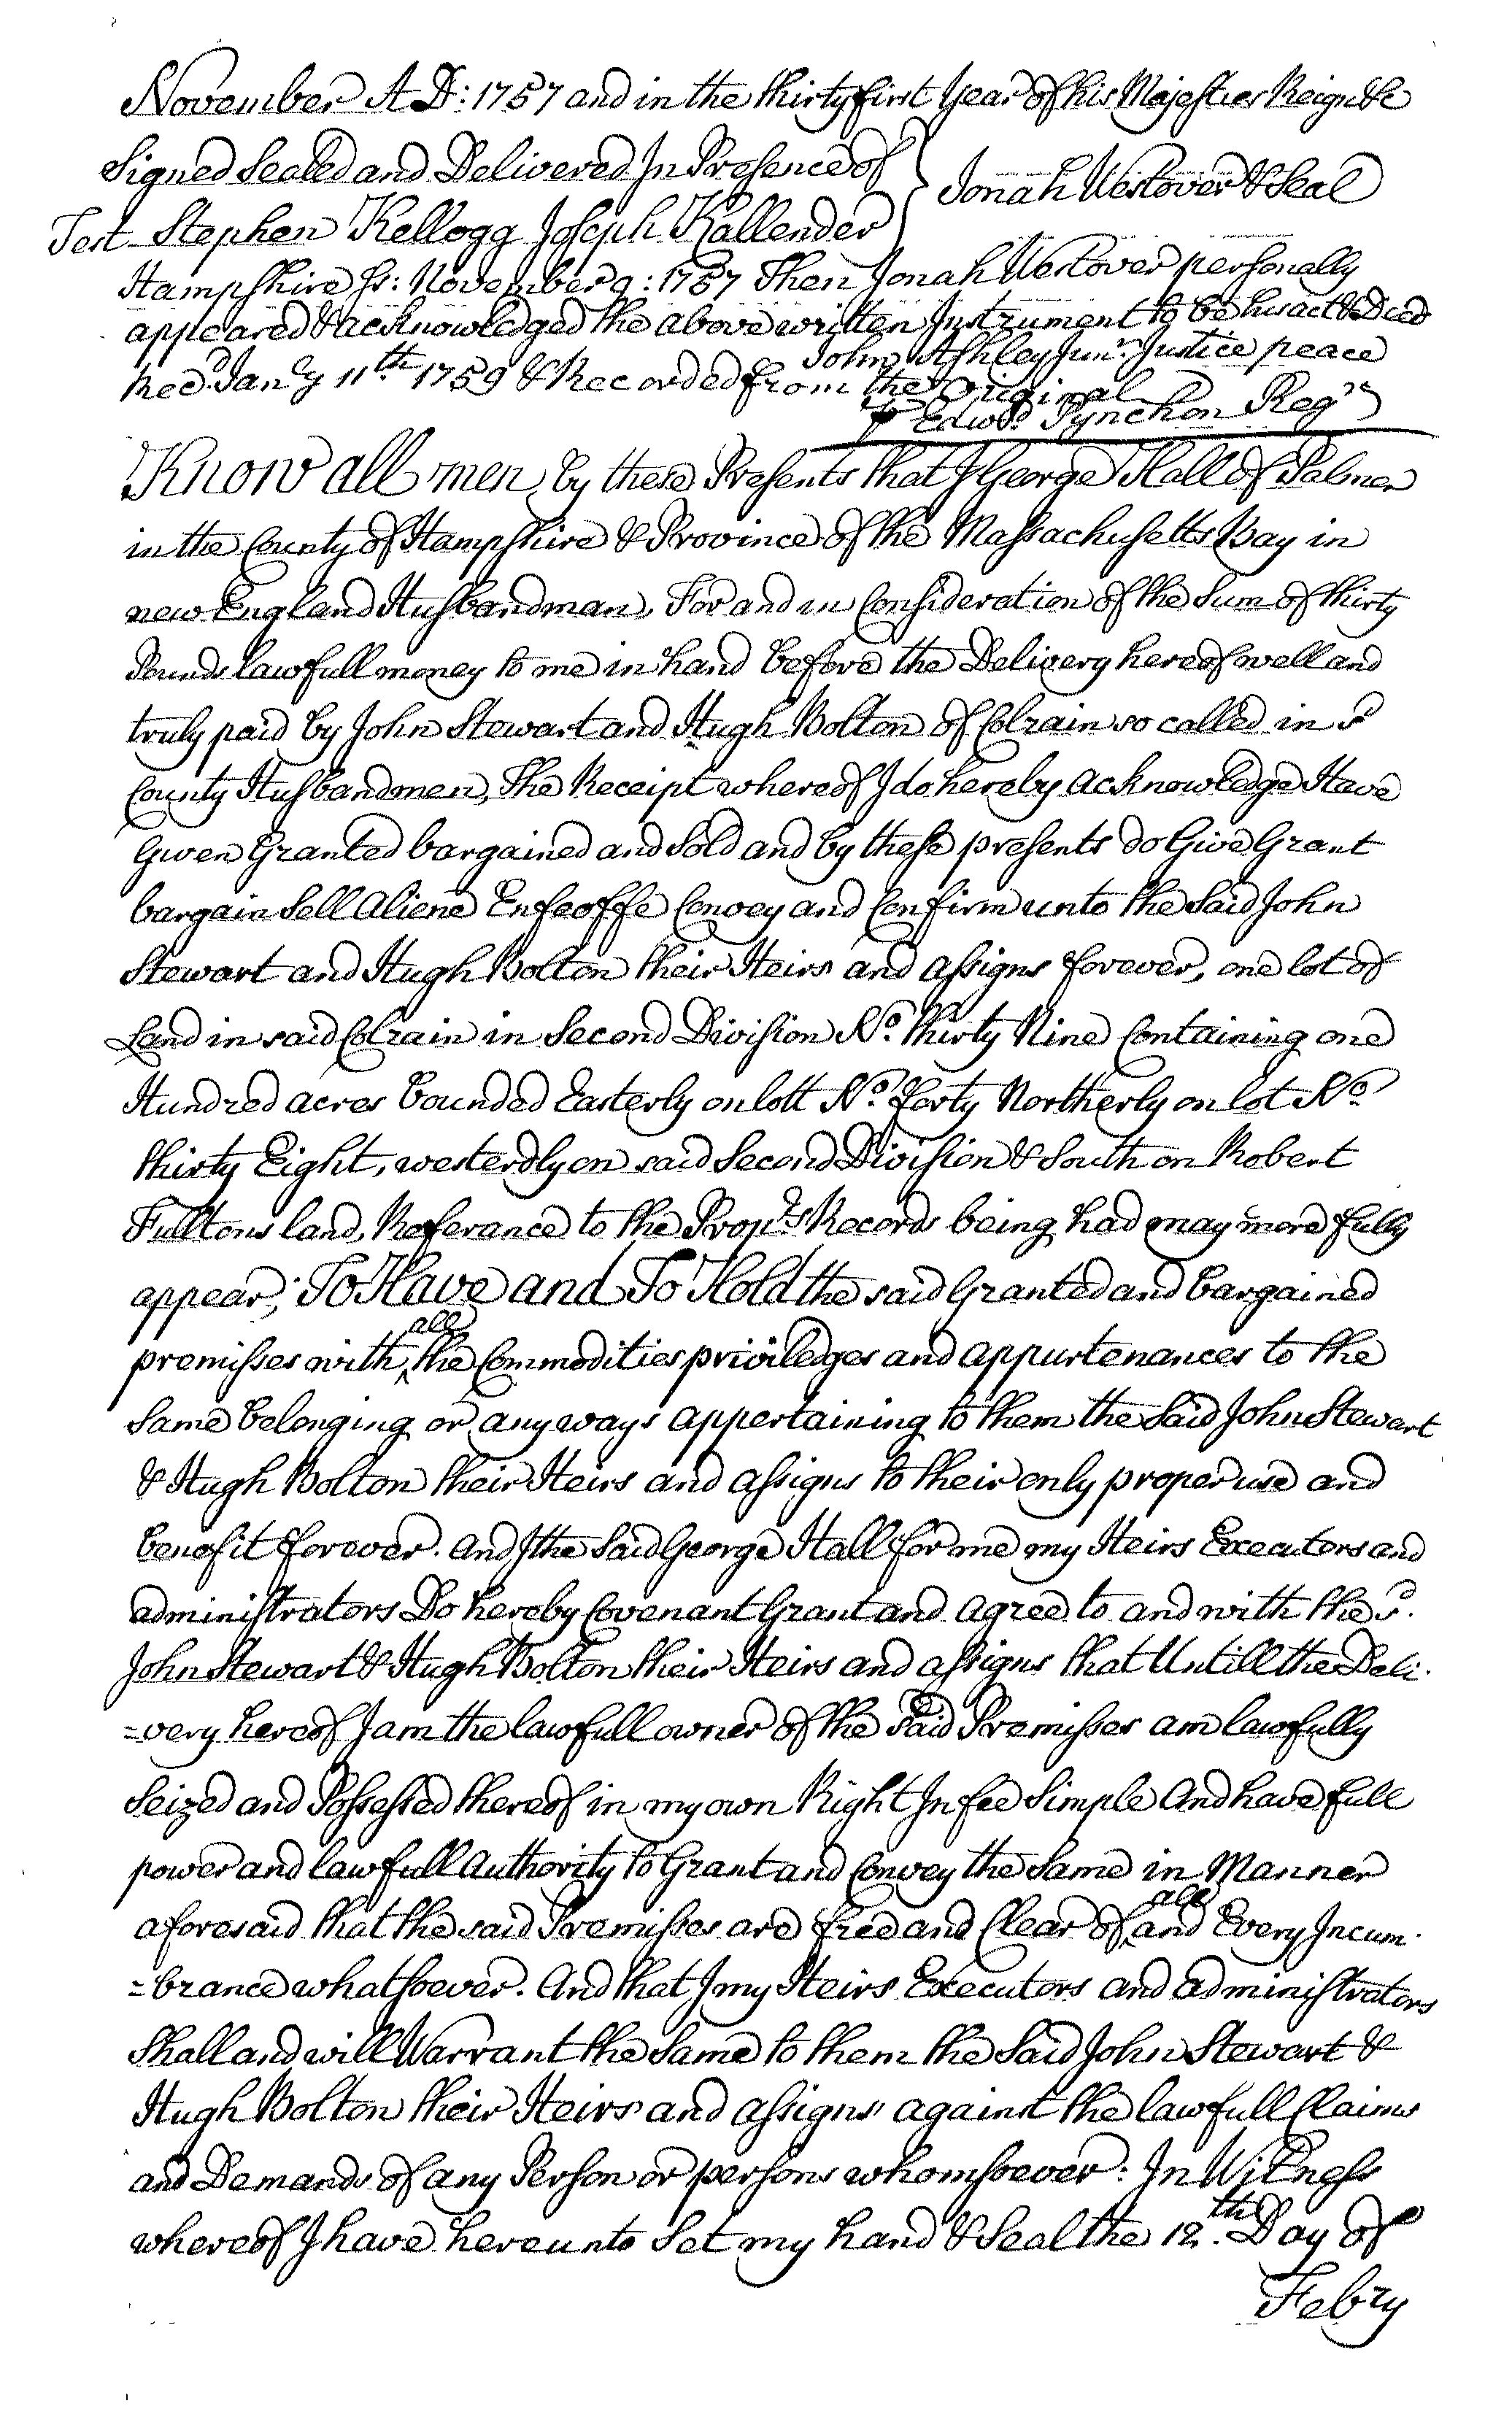 November A D: 1757 and in the thirty first Year of his Majesties Reign &c
Signed Sealed and Delivered In Presence of } Jonah Westover & Seal
Test Stephen Kellogg Joseph Kallender
Hampshire ss: November 9: 1757 Then Jonah Westover personally
appeared & acknowledged the above written Instrument to be his act & Deed
John Ashley Junr. Justice peace
Recd. Jany 11th 1759 & Recorded from the Original
⅌ Edwd. Pynchon Regr
Know all men by these Presents that I George Hall of Palmer
in the County of Hampshire & Province of the Massachusetts Bay in
new England Husbandman, For and in Consideration of the Sum of thirty
Pounds lawfull money to me in hand before the Delivery hereof well and
truly paid by John Stewart and Hugh Bolton of Colrain so called in sd
County Husbandmen, The Receipt whereof I do hereby acknowledge Have
Given Granted bargained and Sold and by these presents do Give Grant
bargain Sell Aliene Enfeoffe Convey and Confirm unto the Said John
Stewart and Hugh Bolton their Heirs and assigns forever, one lot of
Land in said Colrain in Second Division No. thirty Nine Containing one
Hundred acres bounded Easterly on lott No. forty Northerly on lot No
thirty Eight, westerdly on said Second Division & South on Robert
Fulltons land, Referance to the Proprs Records being had may more fully
appear; To Have and To Hold the said Granted and bargained
premisses with all the Commodities priviledges and appurtenances to the
Same belonging or any ways appertaining to them the Said John Stewart
& Hugh Bolton their Heirs and assigns to their only proper use and
benefit forever. And I the Said George Hall for me my Heirs Executors and
administrators Do hereby Covenant Grant and agree to and with the sd.
John Stewart & Hugh Bolton their Heirs and assigns that Untill the Deli-
=very hereof I am the lawfull owner of the Said Premisses am lawfully
Seized and Possessed thereof in my own Right In fee Simple And have full
power and lawfull Authority to Grant and Convey the Same in Manner
aforesaid that the said Premisses are free and Clear of all and Every Incum-
=brance whatsoever. And that I my Heirs Executors and administrators
Shall and will Warrant the Same to them the Said John Stewart &
Hugh Bolton their Heirs and assigns against the lawfull Claims
and Demands of any Person or persons whomsoever: In Witness
whereof I have hereunto Set my hand & Seal the 12.th Day of
Febry